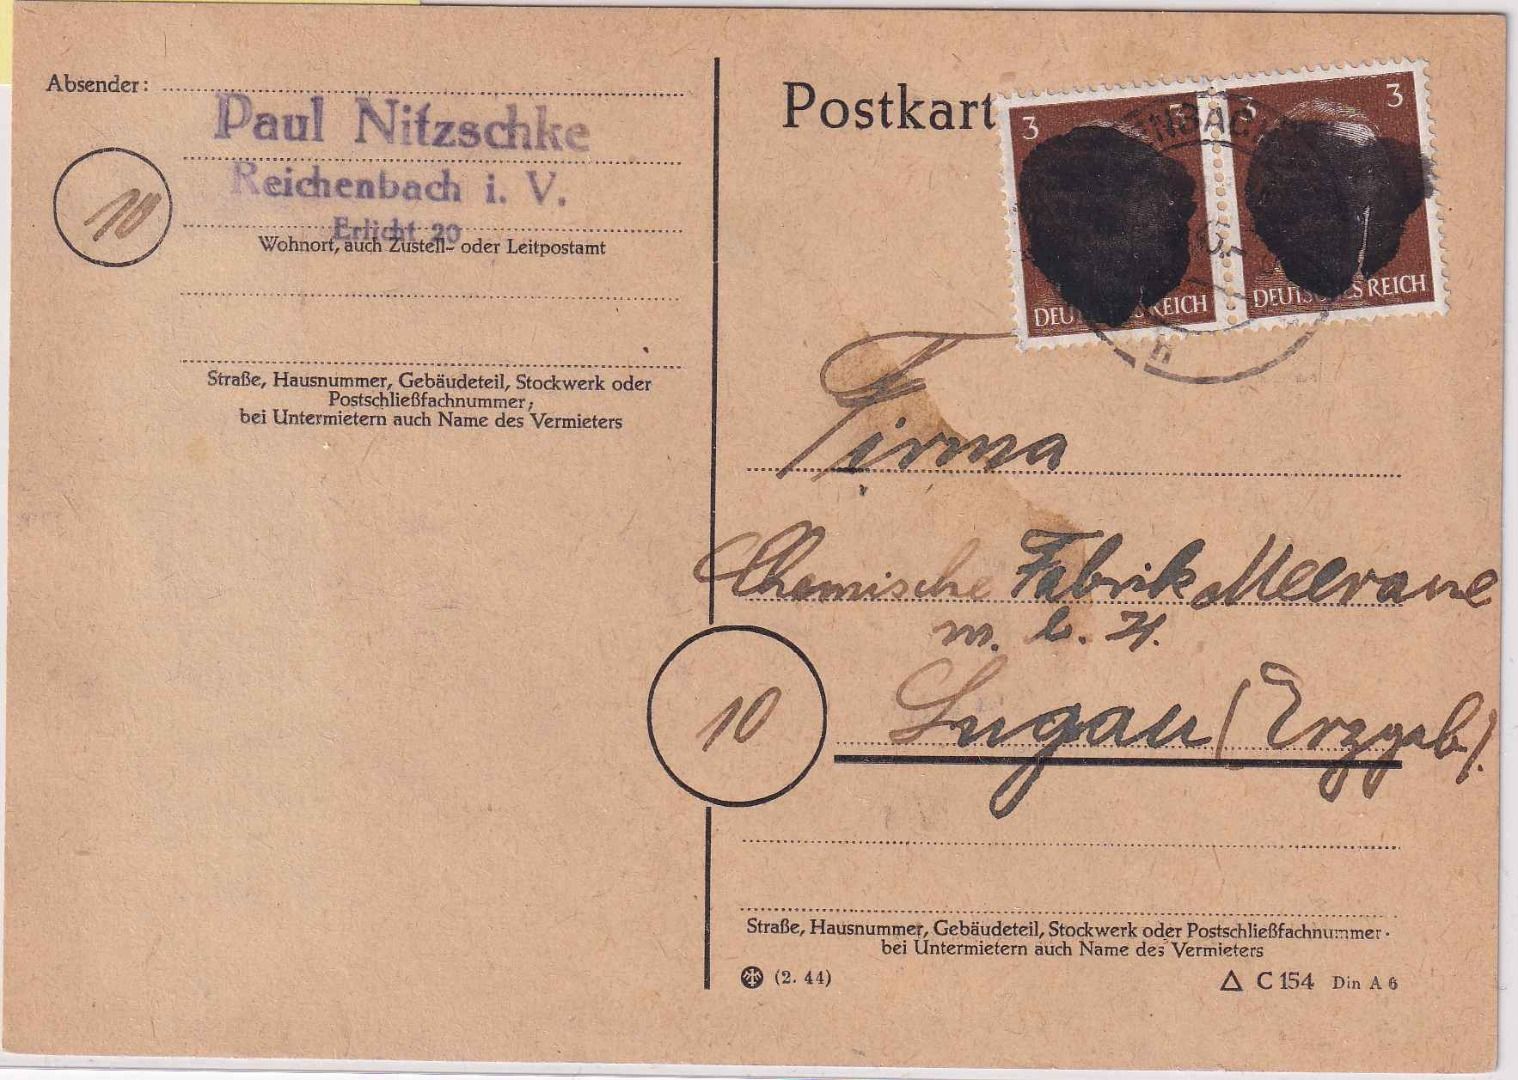 Absender:
Paul Nitzschke
Reichenbach i. V.
Erlicht 20
10
Wohnort, auch Zustell- oder Leitpostamt
Straße, Hausnummer, Gebäudeteil, Stockwerk oder
Postschließfachnummer;
bei Untermietern auch Name des Vermieters
Postkart
3 3
DEUTSCHES REICH
3 3
DEUTSCHES REICH
Firma
Chemische Fabrik Meerane
m. b. H.
10
Lugau (Erzgeb.).
Straße, Hausnummer, Gebäudeteil, Stockwerk oder Postschließfachnummer
bei Untermietern auch Name des Vermieters
(2. 44)
C 154 Din A 6